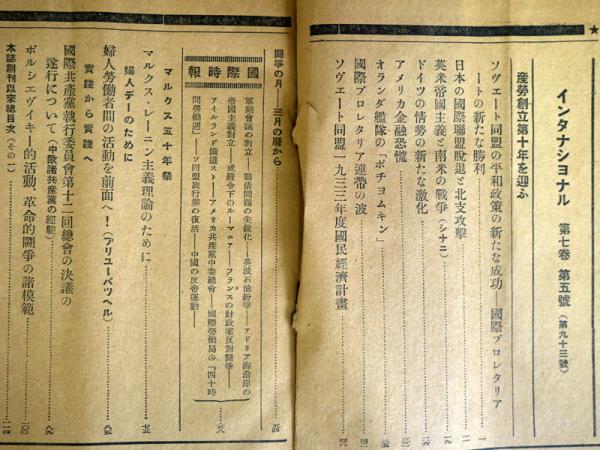 インタナショナル 第七卷 第五號 (第九十三號)
産勞創立第十年を迎ふ
ソヴエート同盟の平和政策の新たなる成功──國際プロレタリア
ートの新たな勝利
日本の國際聯盟脱退と北支攻撃
英米帝國主義と南米の戰爭(シナニ)
ドイツの情勢の新たな激化
アメリカ金融恐慌
オランダ艦隊の「ポチョムキン」
國際プロレタリア連帶の波
ソヴエート同盟一九三三年度國民經濟計畫
鬪爭の月──三月の暦から
國際時報
軍縮會議の對立──戰債問題の尖鋭化──英波石油紛爭──アドリア海沿岸の
帝國主義對立──戒嚴令下のルーマニア──フランスの財政案反對鬪爭──
アイルランド鐵道スト──アメリカ共産黨中委總會──國際勞働局の「四十時
間勞働週」──ソ同盟旅行券の復活──中國の反帝運動──
マルクス五十年祭
マルクス・レーニン主義理論のために
婦人デーのために
婦人勞働者間の活動を前面へ！(プリユーバツヘル)
實踐から實踐へ
國際共産黨執行委員會第十二回總會の決議の
遂行について(中歐諸共産黨の經驗)
ボルシエヴイキー的活動、革命的鬪爭の諸模範
本誌創刊以來總目次(その二)